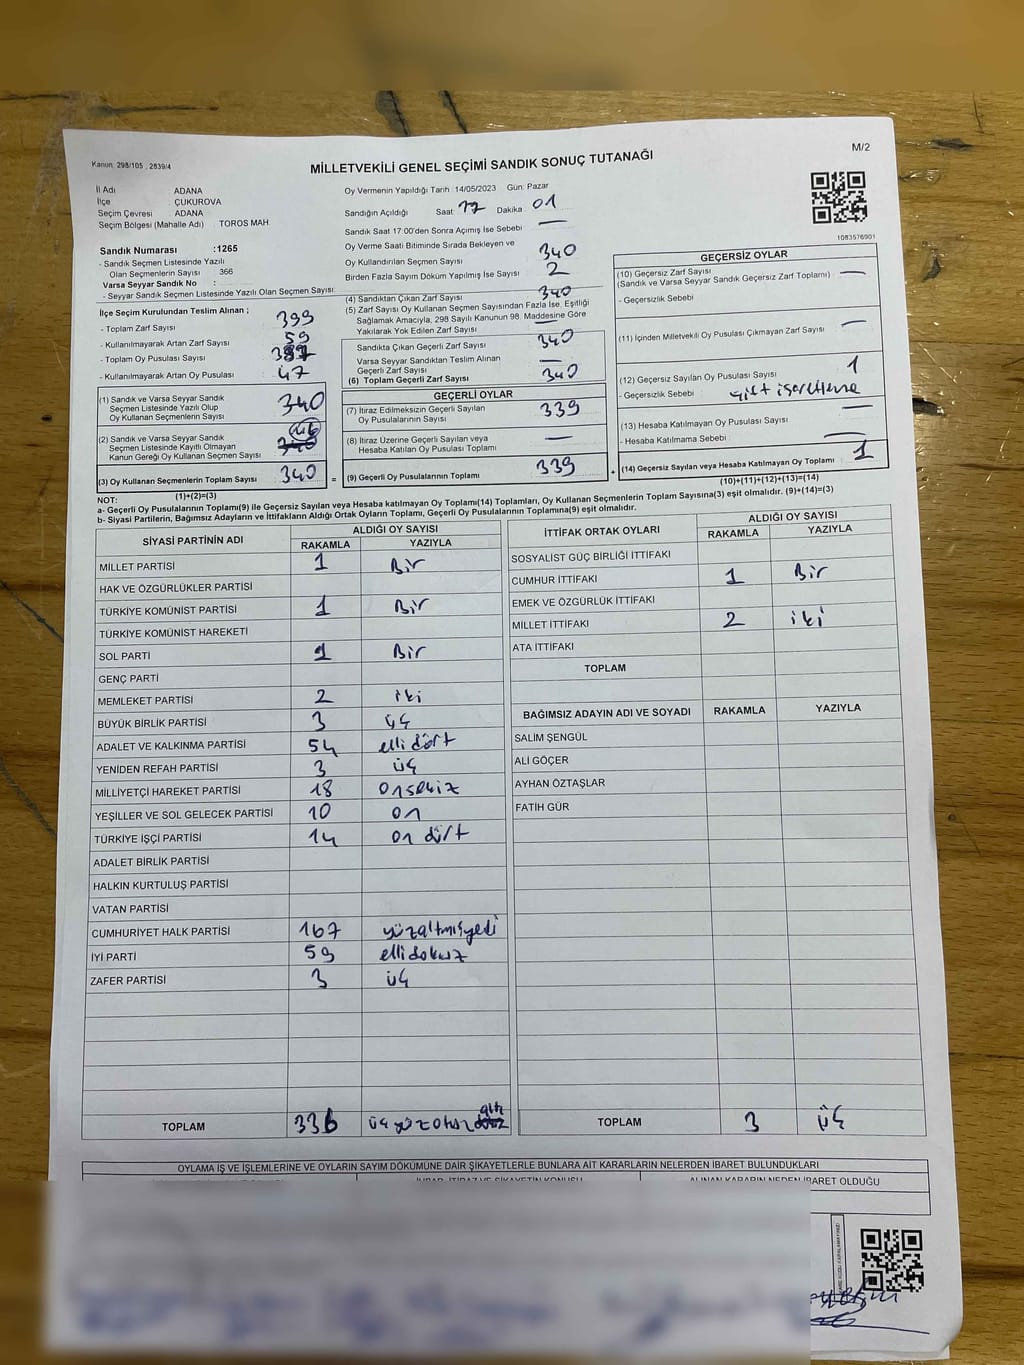 Kanun: 298/105 , 2839/4
MİLLETVEKİLİ GENEL SEÇİMİ SANDIK SONUÇ TUTANAĞI
M/2
İl Adı ADANA
İlçe ÇUKUROVA
Seçim Çevresi ADANA
Seçim Bölgesi (Mahalle Adı) TOROS MAH.
Sandık Numarası :1265
- Sandık Seçmen Listesinde Yazılı
Olan Seçmenlerin Sayısı 366
Varsa Seyyar Sandık No :
- Seyyar Sandık Seçmen Listesinde Yazılı Olan Seçmen Sayısı:
İlçe Seçim Kurulundan Teslim Alınan ;
- Toplam Zarf Sayısı 399
- Kullanılmayarak Artan Zarf Sayısı 59
- Toplam Oy Pusulası Sayısı
- Kullanılmayarak Artan Oy Pusulası 47
(1) Sandık ve Varsa Seyyar Sandık
Seçmen Listesinde Yazılı Olup
Oy Kullanan Seçmenlerin Sayısı 340
(2) Sandık ve Varsa Seyyar Sandık
Seçmen Listesinde Kayıtlı Olmayan
Kanun Gereği Oy Kullanan Seçmen Sayısı
(3) Oy Kullanan Seçmenlerin Toplam Sayısı 340 =
(1)+(2)=(3)
Oy Vermenin Yapıldığı Tarih :14/05/2023 Gün: Pazar
Sandığın Açıldığı Saat: 17 Dakika: 01
Sandık Saat 17:00'den Sonra Açımış İse Sebebi —
Oy Verme Saati Bitiminde Sırada Bekleyen ve
Oy Kullandırılan Seçmen Sayısı 340
Birden Fazla Sayım Döküm Yapılmış İse Sayısı 2
(4) Sandıktan Çıkan Zarf Sayısı 340
(5) Zarf Sayısı Oy Kullanan Seçmen Sayısından Fazla İse, Eşitliği
Sağlamak Amacıyla, 298 Sayılı Kanunun 98. Maddesine Göre
Yakılarak Yok Edilen Zarf Sayısı —
Sandıkta Çıkan Geçerli Zarf Sayısı 340
Varsa Seyyar Sandıktan Teslim Alınan
Geçerli Zarf Sayısı —
(6) Toplam Geçerli Zarf Sayısı 340
GEÇERLİ OYLAR
(7) İtiraz Edilmeksizin Geçerli Sayılan
Oy Pusulalarının Sayısı 339
(8) İtiraz Üzerine Geçerli Sayılan veya
Hesaba Katılan Oy Pusulası Toplamı —
(9) Geçerli Oy Pusulalarının Toplamı 339 +
1083576901
GEÇERSİZ OYLAR
(10) Geçersiz Zarf Sayısı —
(Sandık ve Varsa Seyyar Sandık Geçersiz Zarf Toplamı)
- Geçersizlik Sebebi
(11) İçinden Milletvekili Oy Pusulası Çıkmayan Zarf Sayısı —
(12) Geçersiz Sayılan Oy Pusulası Sayısı 1
- Geçersizlik Sebebi çift işaretleme
(13) Hesaba Katılmayan Oy Pusulası Sayısı —
- Hesaba Katılmama Sebebi —
(14) Geçersiz Sayılan veya Hesaba Katılmayan Oy Toplamı 1
(10)+(11)+(12)+(13)=(14)
NOT:
a- Geçerli Oy Pusulalarının Toplamı(9) ile Geçersiz Sayılan veya Hesaba katılmayan Oy Toplamı(14) Toplamları, Oy Kullanan Seçmenlerin Toplam Sayısına(3) eşit olmalıdır. (9)+(14)=(3)
b- Siyasi Partilerin, Bağımsız Adayların ve İttifakların Aldığı Ortak Oyların Toplamı, Geçerli Oy Pusulalarının Toplamına(9) eşit olmalıdır.
SİYASİ PARTİNİN ADI ALDIĞI OY SAYISI
RAKAMLA YAZIYLA
MİLLET PARTİSİ 1 Bir
HAK VE ÖZGÜRLÜKLER PARTİSİ
TÜRKİYE KOMÜNİST PARTİSİ 1 Bir
TÜRKİYE KOMÜNİST HAREKETİ
SOL PARTİ 1 Bir
GENÇ PARTİ
MEMLEKET PARTİSİ 2 iki
BÜYÜK BİRLİK PARTİSİ 3 üç
ADALET VE KALKINMA PARTİSİ 54 elli dört
YENİDEN REFAH PARTİSİ 3 üç
MİLLİYETÇİ HAREKET PARTİSİ 18 onsekiz
YEŞİLLER VE SOL GELECEK PARTİSİ 10 on
TÜRKİYE İŞÇİ PARTİSİ 14 on dört
ADALET BİRLİK PARTİSİ
HALKIN KURTULUŞ PARTİSİ
VATAN PARTİSİ
CUMHURİYET HALK PARTİSİ 167 yüzaltmışyedi
İYİ PARTİ 59 ellidokuz
ZAFER PARTİSİ 3 üç
TOPLAM 336 üçyüzotuz altı
İTTİFAK ORTAK OYLARI ALDIĞI OY SAYISI
RAKAMLA YAZIYLA
SOSYALİST GÜÇ BİRLİĞİ İTTİFAKI
CUMHUR İTTİFAKI 1 Bir
EMEK VE ÖZGÜRLÜK İTTİFAKI
MİLLET İTTİFAKI 2 iki
ATA İTTİFAKI
TOPLAM
BAĞIMSIZ ADAYIN ADI VE SOYADI RAKAMLA YAZIYLA
SALİM ŞENGÜL
ALİ GÖÇER
AYHAN ÖZTAŞLAR
FATİH GÜR
TOPLAM 3 üç
OYLAMA İŞ VE İŞLEMLERİNE VE OYLARIN SAYIM DÖKÜMÜNE DAİR ŞİKAYETLERLE BUNLARA AİT KARARLARIN NELERDEN İBARET BULUNDUKLARI
ALINAN KARARIN NEDEN İBARET OLDUĞU